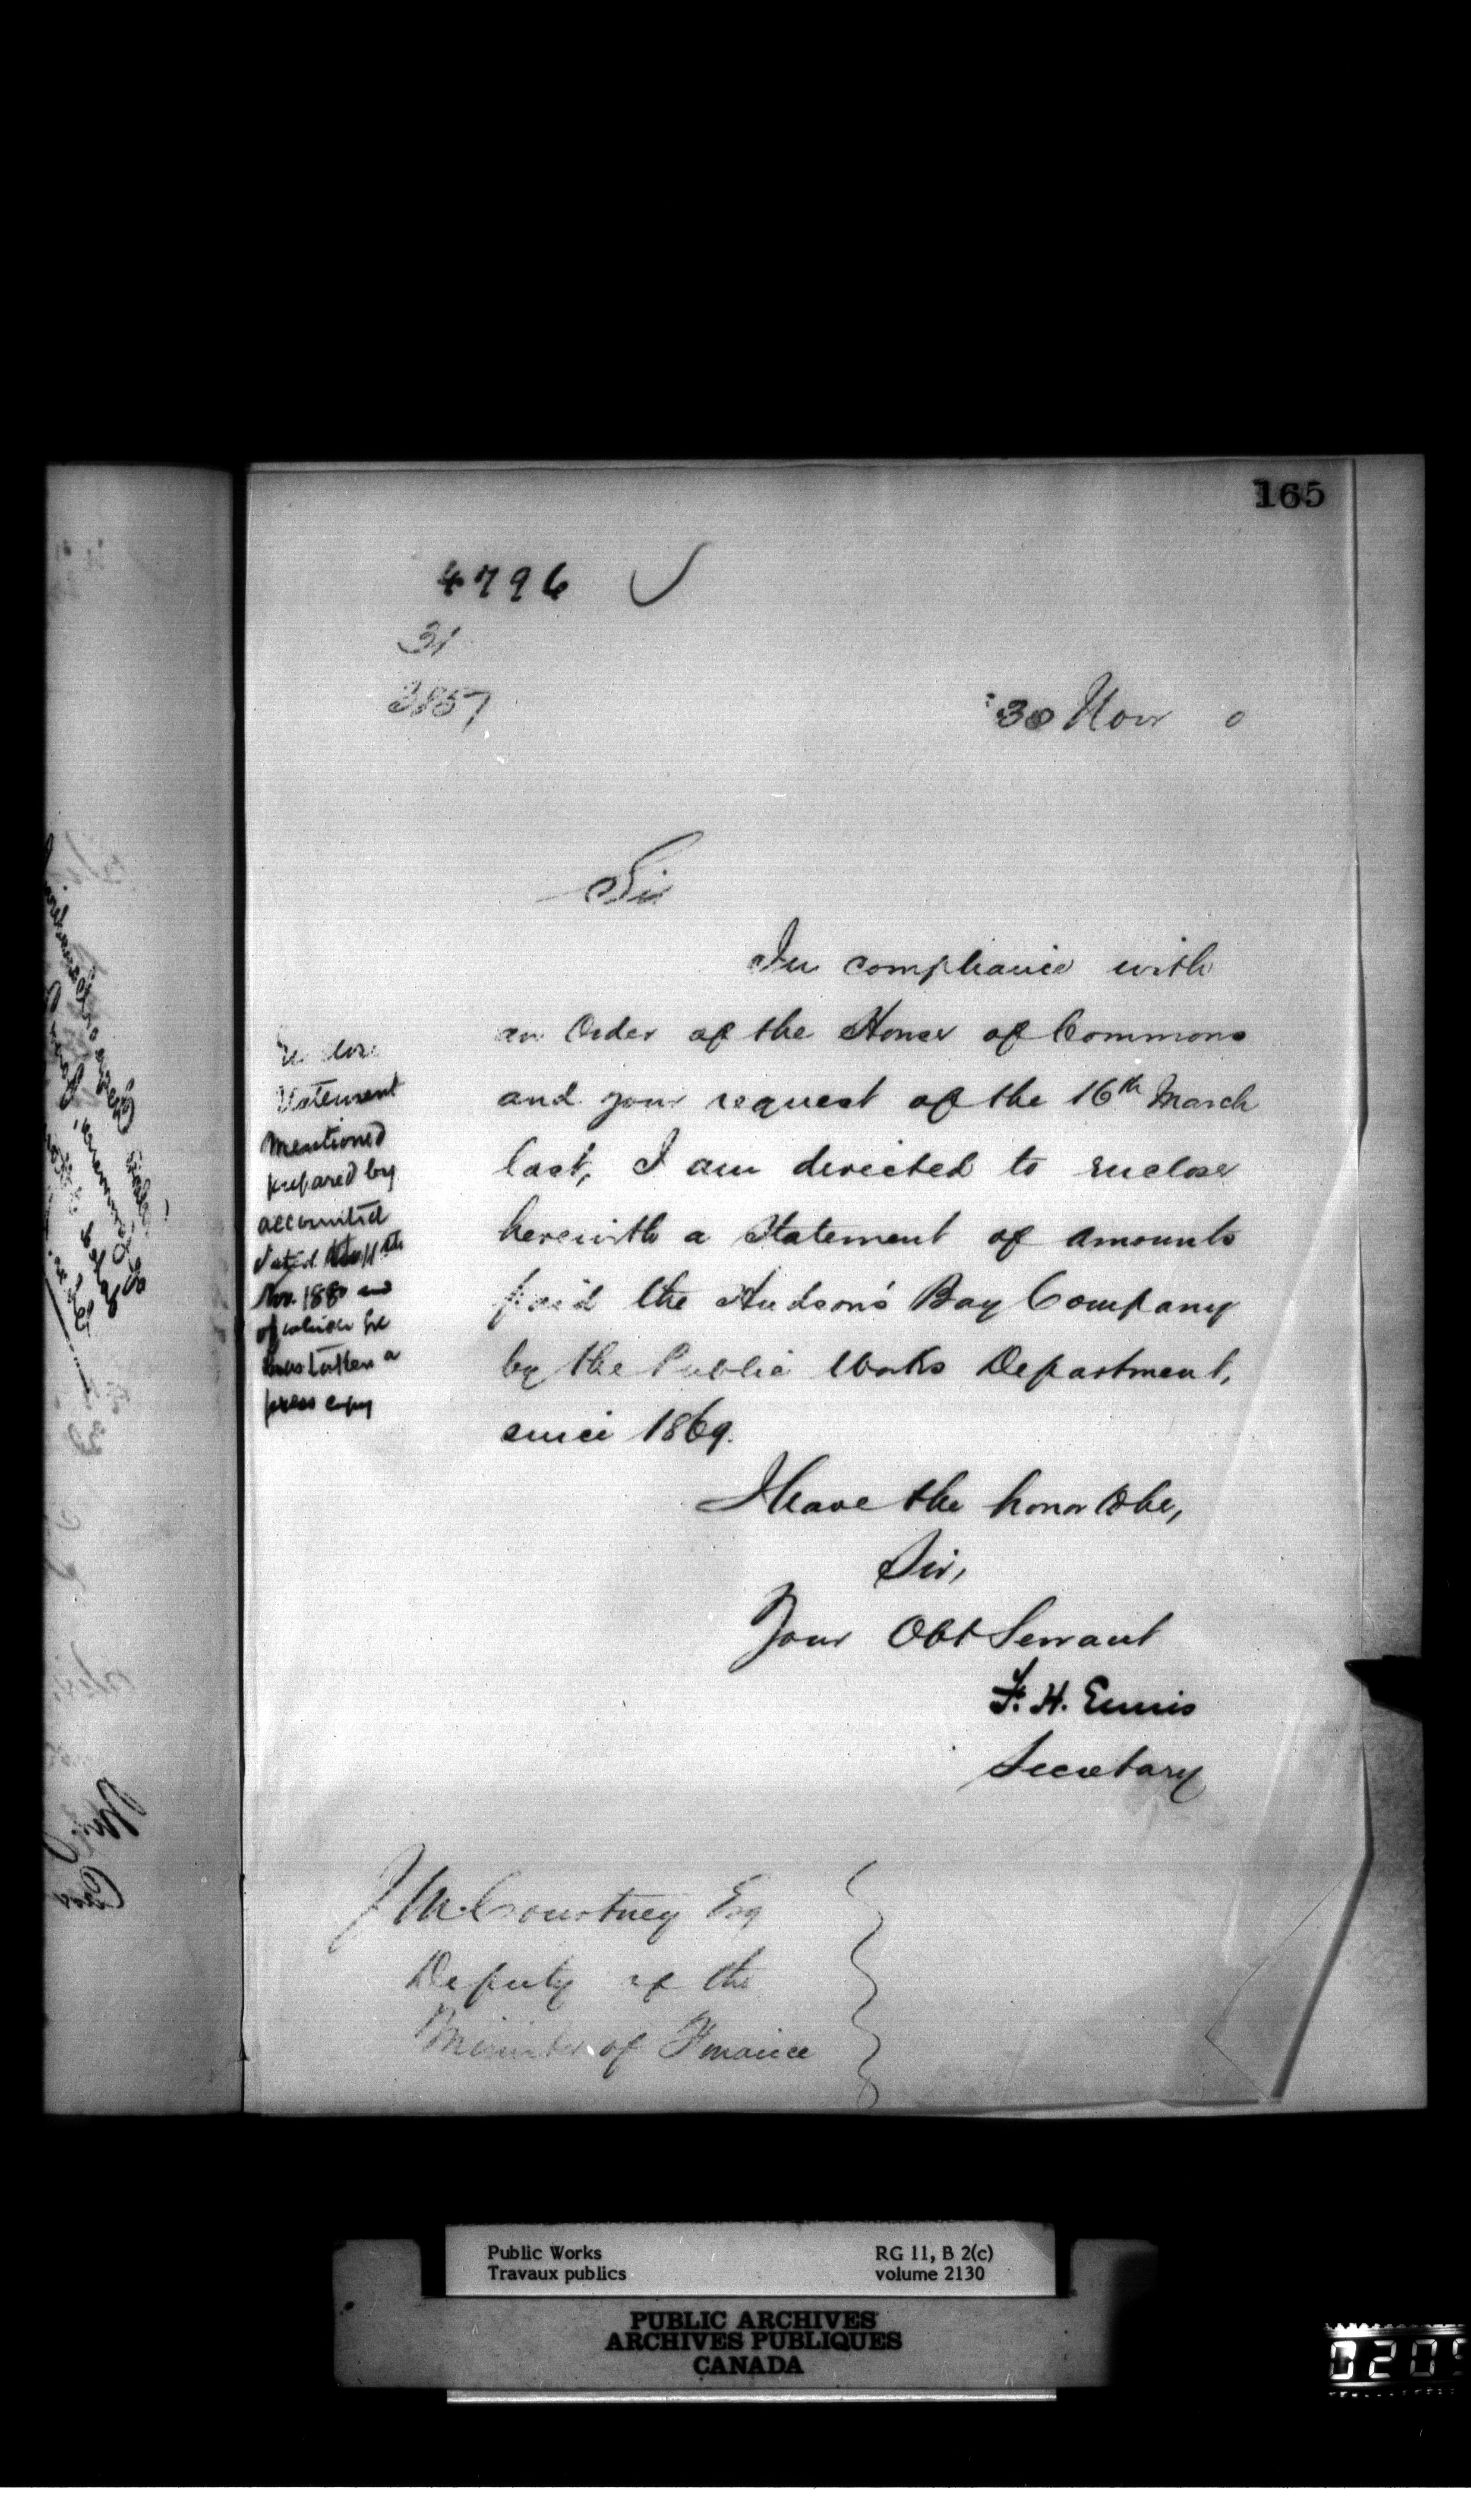 165
4796
31
3857
30 Nov 0
Sir
In compliance with
an Order of the House of Commons
and your request of the 16th March
last, I am directed to enclose
herewith a Statement of amounts
paid the Hudson's Bay Company
by the Public Works Department,
since 1869.
I have the honor to be,
Sir,
Your Obt Servant
F. H. Ennis
Secretary
Enclose
Statement
mentioned
prepared by
dated 11th
Nov. 1880 and
of which he
has taken a
press copy
J M Courtney Esq
Deputy of the
Minister of Finance
Public Works
Travaux publics
RG 11, B 2(c)
volume 2130
PUBLIC ARCHIVES
ARCHIVES PUBLIQUES
CANADA
020